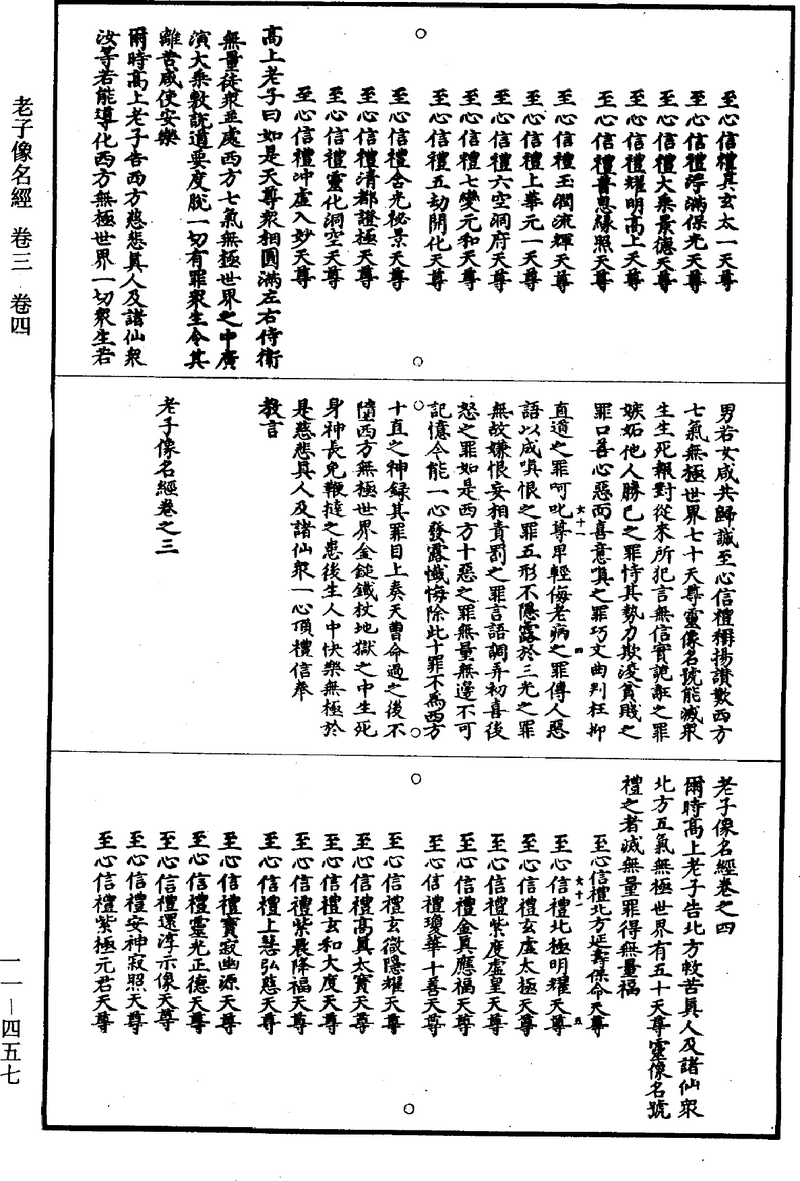 老子像名經 卷三 卷四
至心信禮真玄太一天尊
至心信禮淨滿保光天尊
至心信禮大乘景德天尊
至心信禮耀明高上天尊
至心信禮普恩緣照天尊
至心信禮玉潤流輝天尊
至心信禮上華元一天尊
至心信禮六空洞府天尊
至心信禮七變元和天尊
至心信禮五劫開化天尊
至心信禮含光秘景天尊
至心信禮清都證極天尊
至心信禮靈化洞空天尊
至心信禮冲虛入妙天尊
高上老子曰如是天尊衆相圓滿左右侍衛
無量徒衆並處西方七氣無極世界之中廣
演大乘敷說道要度脫一切有罪衆生令其
離苦咸使安樂
爾時高上老子告西方慈悲真人及諸仙衆
汝等若能導化西方無極世界一切衆生若
男若女咸共歸誠至心信禮稱揚讚歎西方
七氣無極世界七十天尊靈像名號能滅衆
生生死報對從來所犯言無信實詭誑之罪
嫉妬他人勝己之罪恃其勢力欺淩貧賤之
罪口善心惡而喜意嗔之罪巧文曲判枉抑
女十一
四
直道之罪呵叱尊卑輕侮老病之罪傳人惡
語以成嗔恨之罪五形不隱露於三光之罪
無故嫌恨妄相責罰之罪言語調弄初喜後
怒之罪如是西方十惡之罪無量無邊不可
記憶今能一心發露懺悔除此十罪不為西方
十直之神録其罪目上奏天曹命過之後不
墮西方無極世界金鎚鐵杖地獄之中生死
身神長免鞭撻之患後生人中快樂無極於
是慈悲真人及諸仙衆一心頂禮信奉
教言
老子像名經卷之三
老子像名經卷之四
爾時高上老子告北方救苦真人及諸仙衆
北方五氣無極世界有五十天尊靈像名號
禮之者滅無量罪得無量福
至心信禮北方延壽保命天尊
女十一
五
至心信禮北極明耀天尊
至心信禮玄虛太極天尊
至心信禮紫度虛皇天尊
至心信禮金真應福天尊
至心信禮瓊華十善天尊
至心信禮玄微隱耀天尊
至心信禮高真太寶天尊
至心信禮玄和大度天尊
至心信禮紫晨降福天尊
至心信禮上慧弘慈天尊
至心信禮寶寂幽源天尊
至心信禮靈光正德天尊
至心信禮還淳示像天尊
至心信禮安神寂照天尊
至心信禮紫極元君天尊
一一—四五七